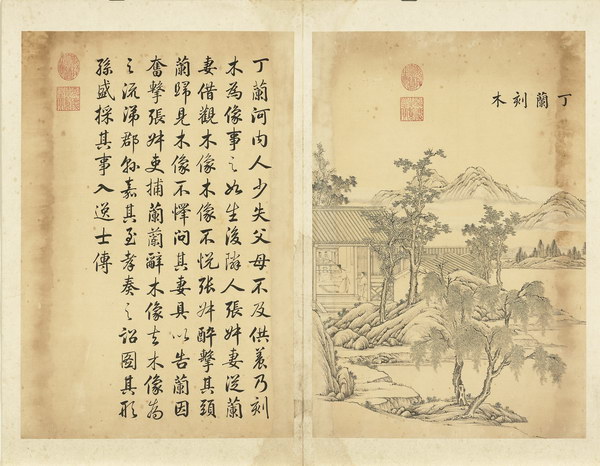 丁蘭刻木
丁蘭河內人少失父母不及供養乃刻
木為像事之如生後隣人張妷妻從蘭
妻借觀木像木像不悅張妷醉擊其頭
蘭歸見木像不懌問其妻具以告蘭因
奮擊張妷吏捕蘭蘭辭木像去木像為
之流涕郡縣嘉其至孝奏之詔圖其形
孫盛採其事入逸士傳